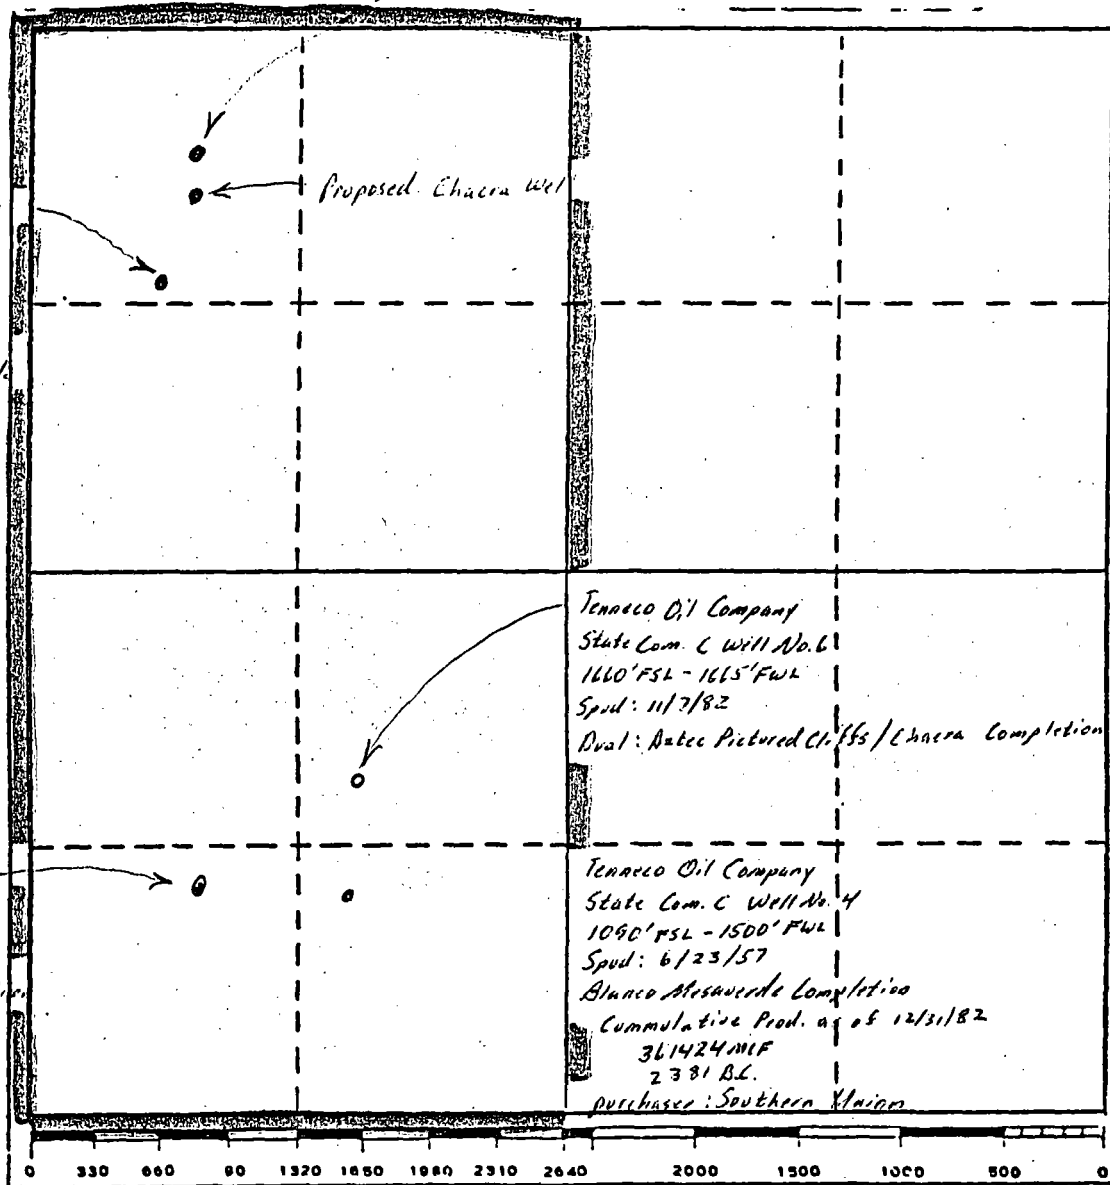 Proposed Chacra Wel
Tenneco Oil Company
State Com. C Well No. 6
1660' FSL - 1665' FWL
Spud: 11/7/82
Dual: Aztec Pictured Cliffs / Chacra Completion
Tenneco Oil Company
State Com. C Well No. 4
1090' FSL - 1500' FWL
Spud: 6/23/57
Blanco Mesaverde Completion
Cummulative Prod. as of 12/31/82
361424 MCF
2381 BC.
purchaser: Southern Union
0 330 660 90 1320 1650 1980 2310 2640 2000 1500 1000 500 0